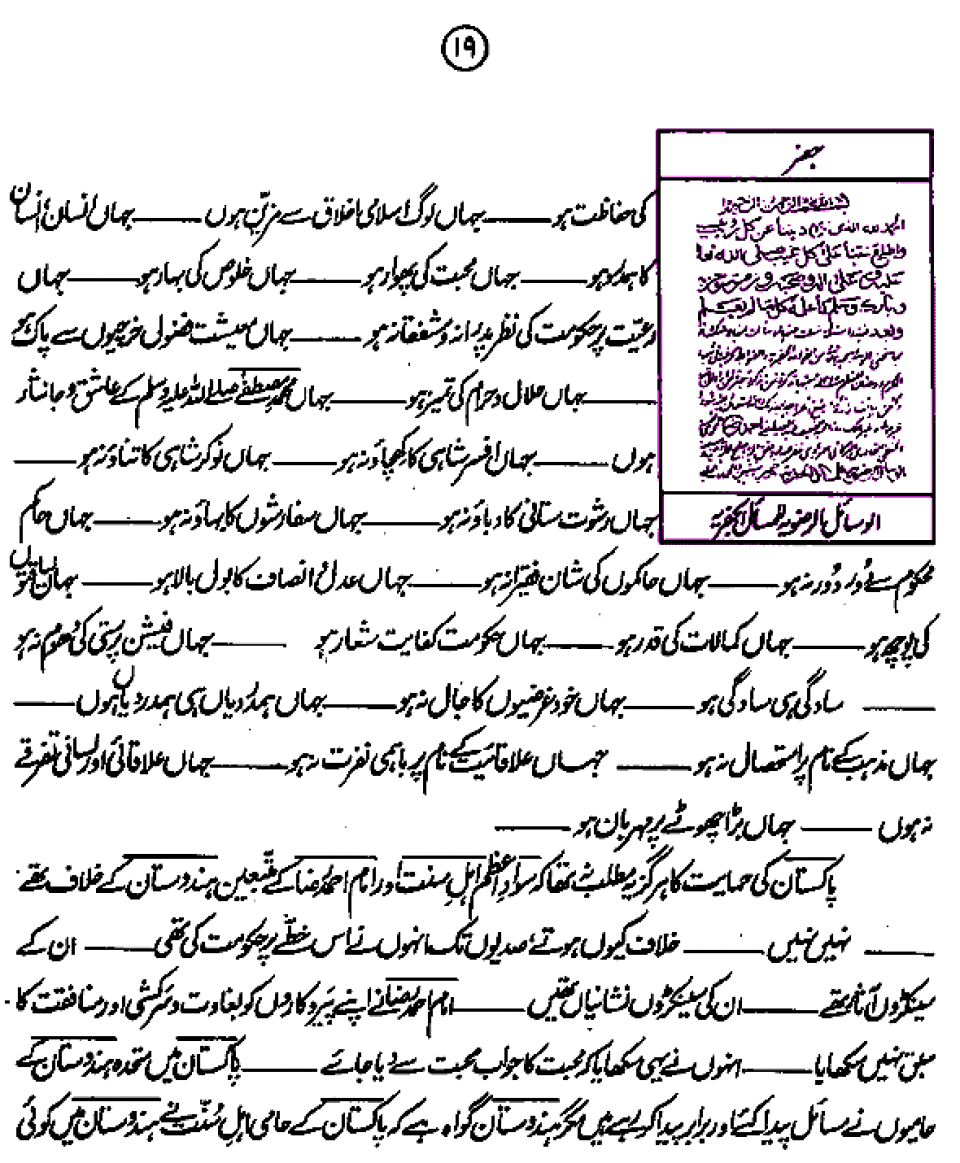 ۱۹
جفر
کی حفاظت ہو ——— جہاں لوگ اسلامی اخلاق سے مزیّن ہوں ——— جہاں انسان انسان
کا ہمدرد ہو ——— جہاں محبت کی پھوار ہو ——— جہاں خلوص کی بہار ہو ——— جہاں
رعیّت پر حکومت کی نظر پدرانہ و مشفقانہ ہو ——— جہاں معیشت فضول خرچیوں سے پاک ہو
——— جہاں حلال و حرام کی تمیز ہو ——— جہاں محمد مصطفےٰ صلے اللہ علیہ وسلم کے عاشق و جانثار
ہوں ——— جہاں افسر شاہی کا کھچاؤ نہ ہو ——— جہاں نوکر شاہی کا تناؤ نہ ہو ———
جہاں رشوت ستانی کا دباؤ نہ ہو ——— جہاں سفارشوں کا بہاؤ نہ ہو ——— جہاں حاکم
الوسائل الرضویہ للمسائل الجفریہ
محکوم سے دُور دُور نہ ہو ——— جہاں حاکموں کی شان فقیرانہ ہو ——— جہاں عدل و انصاف کا بول بالا ہو ——— جہاں قابلیتوں
کی پوچھ ہو ——— جہاں کمالات کی قدر ہو ——— جہاں حکومت کفایت شعار ہو ——— جہاں فیشن پرستی کی دُھوم نہ ہو
——— سادگی ہی سادگی ہو ——— جہاں خود غرضیوں کا جال نہ ہو ——— جہاں ہمدردیاں ہی ہمدردیاں ہوں ———
جہاں مذہب کے نام پر استحصال نہ ہو ——— جہاں علاقائیت کے نام پر باہمی نفرت نہ ہو ——— جہاں علاقائی اور لسانی تفرقے
نہ ہوں ——— جہاں بڑا چھوٹے پر مہربان ہو ———
پاکستان کی حمایت کا ہرگز یہ مطلب نہ تھا کہ سوادِ اعظم اہلِ سنت اور امام احمد رضا کے متّبعین ہندوستان کے خلاف تھے
——— نہیں نہیں ——— خلاف کیوں ہوتے صدیوں تک انہوں نے اس خطّے پر حکومت کی تھی ——— ان کے
سینکڑوں آثار تھے ——— ان کی سینکڑوں نشانیاں تھیں ——— امام احمد رضا نے اپنے پیروکاروں کو بغاوت و سرکشی اور منافقت کا
سبق نہیں سکھایا ——— انہوں نے یہی سکھایا کہ محبت کا جواب محبت سے دیا جائے ——— پاکستان میں متحدہ ہندوستان کے
حامیوں نے مسائل پیدا کئے اور برابر پیدا کر رہے ہیں مگر ہندوستان گواہ ہے کہ پاکستان کے حامی اہلِ سُنّت نے ہندوستان میں کوئی